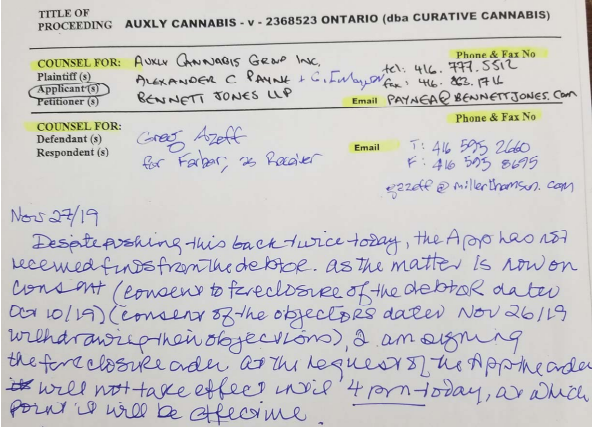 TITLE OF
PROCEEDING AUXLY CANNABIS - v - 2368523 ONTARIO (dba CURATIVE CANNABIS)
COUNSEL FOR: AUXLY CANNABIS GROUP INC, Phone & Fax No
Plaintiff (s) ALEXANDER C PAYNE + tel: 416. 777. 5512
Applicant (s) fax: 416. 863. 1716
Petitioner (s) BENNETT JONES LLP Email PAYNEA@BENNETTJONES.com
COUNSEL FOR: Phone & Fax No
Defendant (s) Greg Azeff Email T: 416 595 2660
Respondent (s) for Farber; as Receiver F: 416 595 8695
gazeff@millerthomson.com
Nov 27/19
Despite pushing this back twice today, the App has not
received funds from the debtor. as the matter is now on
consent (consent to foreclosure of the debtor dated
Oct 10/19) (consent of the objectors dated Nov 26/19
withdrawing their objections), I am signing
the foreclosure order at the request of the App the order
will not take effect until 4 pm today, at which
point it will be effective.